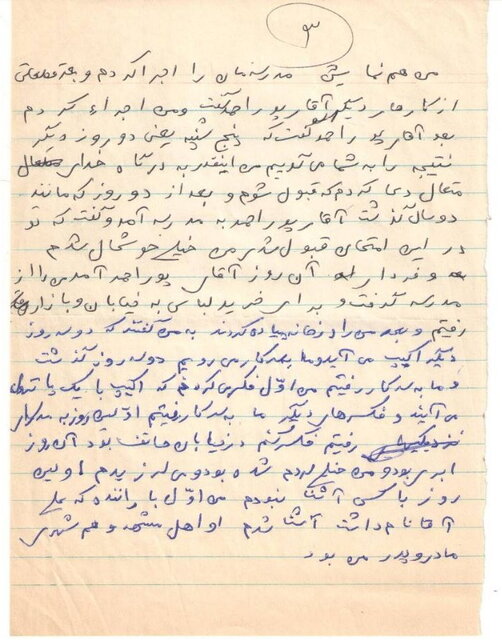 ۳
من هم نمایش مدرسه‌مان را اجرا کردم و بعد قطعاتی
از کارهای دیگر آقای پوراحمد گفت و من اجراء کردم
بعد آقای پوراحمد گفت که پنج شنبه یعنی دو روز دیگر
نتیجه را به شما می گویم من اینقدر به درگاه خدای
متعال دعا کردم که قبول شوم و بعد از دو روز که مانند
دو سال گذشت آقای پوراحمد به مدرسه آمد و گفت که تو
در این امتحان قبول شدی من خیلی خوشحال شدم
و فردای آن روز آقای پوراحمد آمد من را از
مدرسه گرفت و برای خرید لباس به خیابان و بازار
رفتیم و بعد من را در خانه پیاده کردند به من گفتند که دو سه روز
دیگر اکیپ می آید و ما بعد کار می رویم دو سه روز گذشت
و ما به سر کار رفتیم من اوّل فکر می کردم که اکیپ با یک پاترول
می آیند و فکرهای دیگر ما به سر کار رفتیم اوّلین روز به
رفتیم فکر کنم در خیابان حافظ بود آن روز
ابری بود و من خیلی سردم شده بود و می لرزیدم اولین
روز با کسی آشنا نبودم من اوّل با راننده که علی
آقا نام داشت آشنا شدم او اهل و هم شهری
مادر و پدر من بود